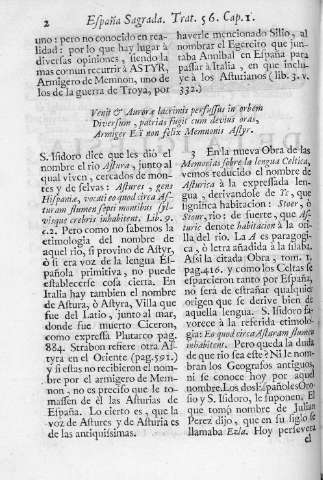 2 España Sagrada. Trat. 56. Cap. 1.
uno: pero no conocido en rea-
lidad: por lo que hay lugar à
diversas opiniones, siendo la
mas comun recurrir à ASTYR,
Armigero de Memnon, uno de
los de la guerra de Troya, por
haverle mencionado Silio, al
nombrar el Egercito que jun-
taba Annibal en España para
passar à Italia, en que inclu-
ye à los Asturianos (lib. 3. v.
332.)
Venit & Auroræ lacrimis perfusus in orbem
Diversum, patrias fugit cum devius oras,
Armiger Eoi non felix Memnonis Astyr.
S. Isidoro dice que les diò el
nombre el rio Astura, junto al
qual viven, cercados de mon-
tes y de selvas: Astures, gens
Hispaniæ, vocati eo quod circa As-
turam flumen septi montibus syl-
visque crebris inhabitent. Lib. 9.
c. 2. Pero como no sabemos la
etimologia del nombre de
aquel rio, si provino de Astyr,
ò si era voz de la lengua Es-
pañola primitiva, no puede
establecerse cosa cierta. En
Italia hay tambien el nombre
de Astura, ò Astyra, Villa que
fue del Latio, junto al mar,
donde fue muerto Ciceron,
como expressa Plutarco pag.
884. Strabon refiere otra As-
tyra en el Oriente (pag. 591.)
y si estas no recibieron el nom-
bre por el armigero de Mem-
non, no es preciso que le to-
massen de èl las Asturias de
España. Lo cierto es, que la
voz de Astures y de Asturia es
de las antiquissimas.
3 En la nueva Obra de las
Memorias sobre la lengua Celtica,
vemos reducido el nombre de
Asturica à la expressada len-
gua, derivandole de Tc, que
significa habitacion: Stoer, ò
Stour, rio: de suerte, que As-
turic denote habitacion à la ori-
lla del rio. La A es paragogi-
ca, ò letra añadida à la silaba.
Assi la citada Obra, tom. 1.
pag. 416. y como los Celtas se
esparcieron tanto por España,
no serà de estrañar qualquier
origen que se derive bien de
aquella lengua. S. Isidoro fa-
vorece à la referida etimolo-
gia: Eo quod circa Asturam flumen
inhabitent. Pero queda la duda
de que rio sea este? Ni le nom-
bran los Geografos antiguos,
ni se conoce hoy por aquel
nombre. Los dos Españoles Oro-
sio y S. Isidoro, le suponen. El
que tomò nombre de Julian
Perez dijo, que en su siglo se
llamaba Ezla. Hoy persevera
el